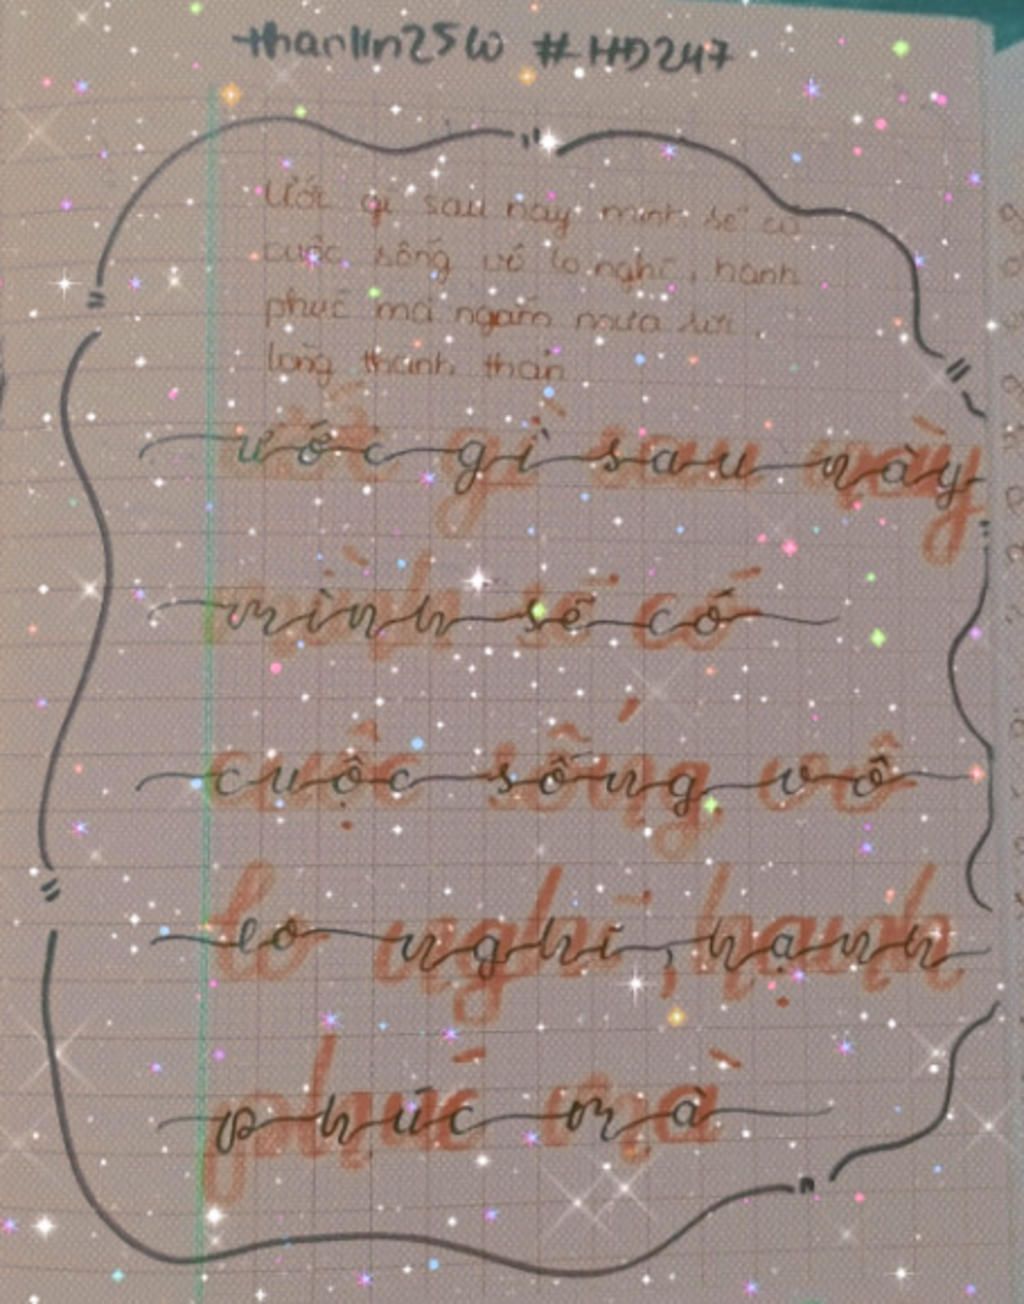 thanlin25w #HD247
Ước gì sau này mình sẽ có
cuộc sống vô lo nghĩ, hạnh
phúc mà ngắm mưa rơi
lòng thanh thản
ước gì sau này
mình sẽ có
cuộc sống vô
lo nghĩ, hạnh
phúc mà